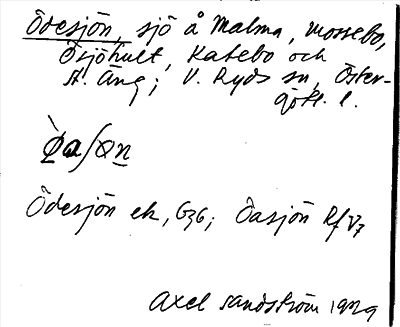 Ödesjön, sjö å Malma, Mossebo,
Ösjöhult, Katebo och
St. Äng; V. Ryds sn, Öster-
götl. l.
Ödesjön ek, G36; Öasjön Rf V7
Axel Sandström 1929